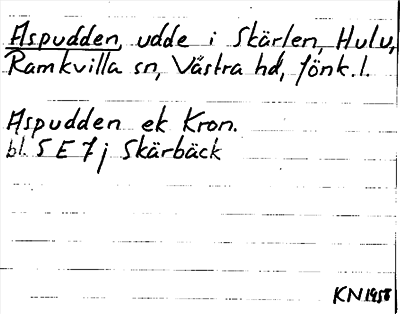 Aspudden, udde i Skärlen, Hulu,
Ramkvilla sn, Västra hd, Jönk.l.
Aspudden ek Kron.
bl. 5 E 7 j Skärbäck
KN 1958